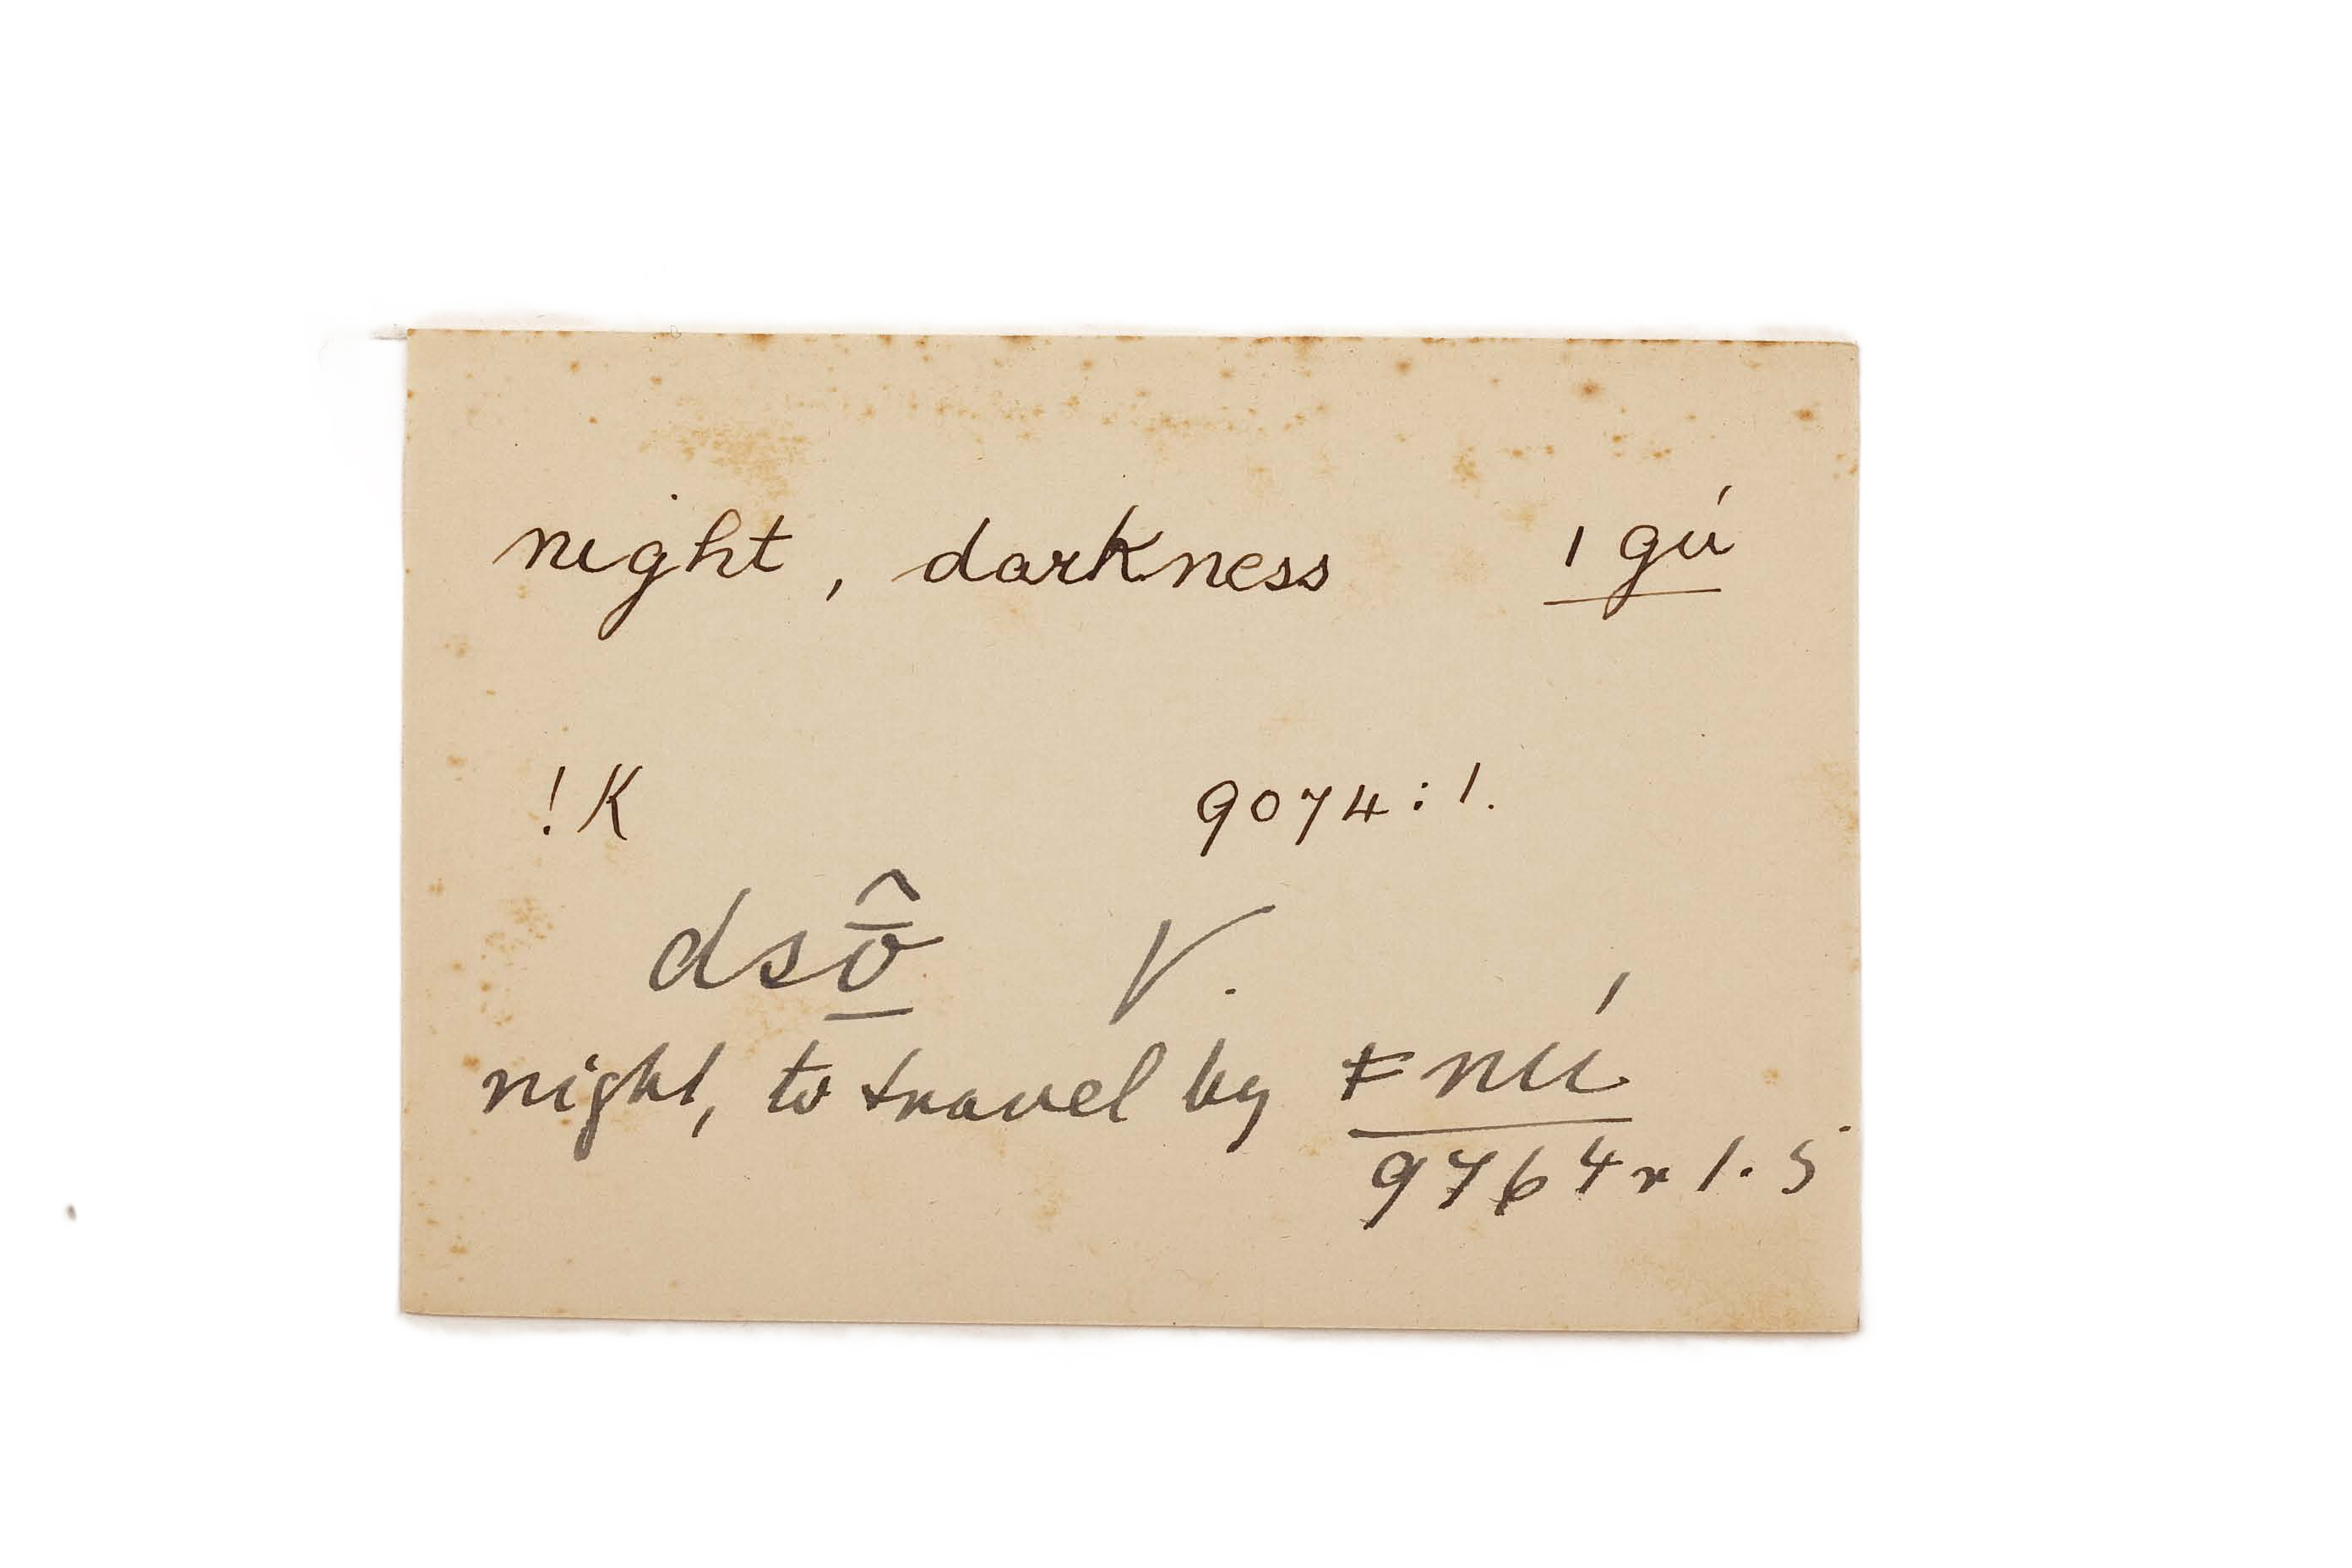 night, darkness ǀ gú
!K 9074:1.
dsō̭̂ V.
night, to travel by ǂ nú
9764 r 1.5